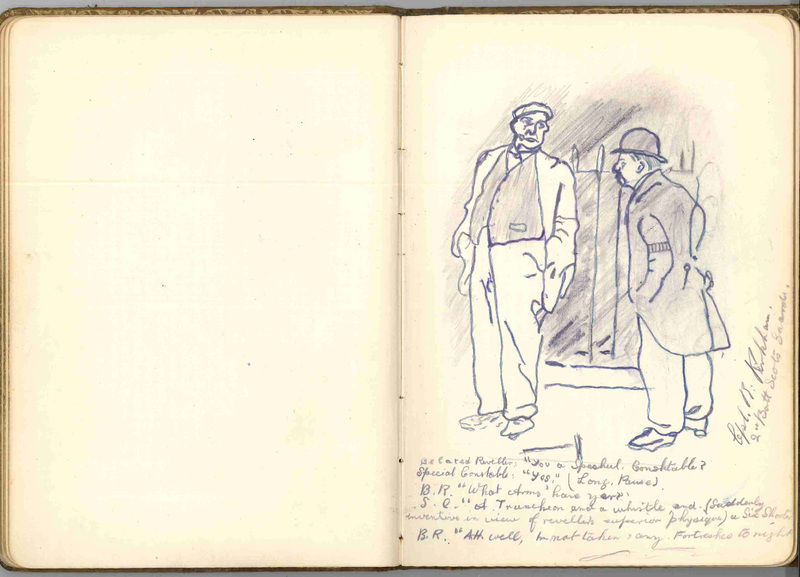 Belated Reveller; "You a Speshul. Conshtable?
Special Constable: "Yes," (Long Pause).
B.R. "What Arms' have yer?
S.C. "A Truncheon and a whistle and (Suddenly
inventive in view of reveller's superior physique) a Six Shooter
B.R. "Ah well, Im not taken any Fortreshes to night
Cpl. D. Kirkham.
2nd Batt Scots Guards.